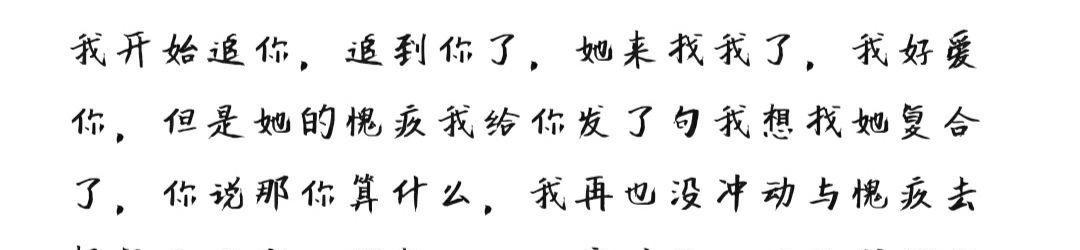 我开始追你，追到你了，她来找我了，我好爱
你，但是她的愧疚我给你发了句我想找她复合
了，你说那你算什么，我再也没冲动与愧疚去